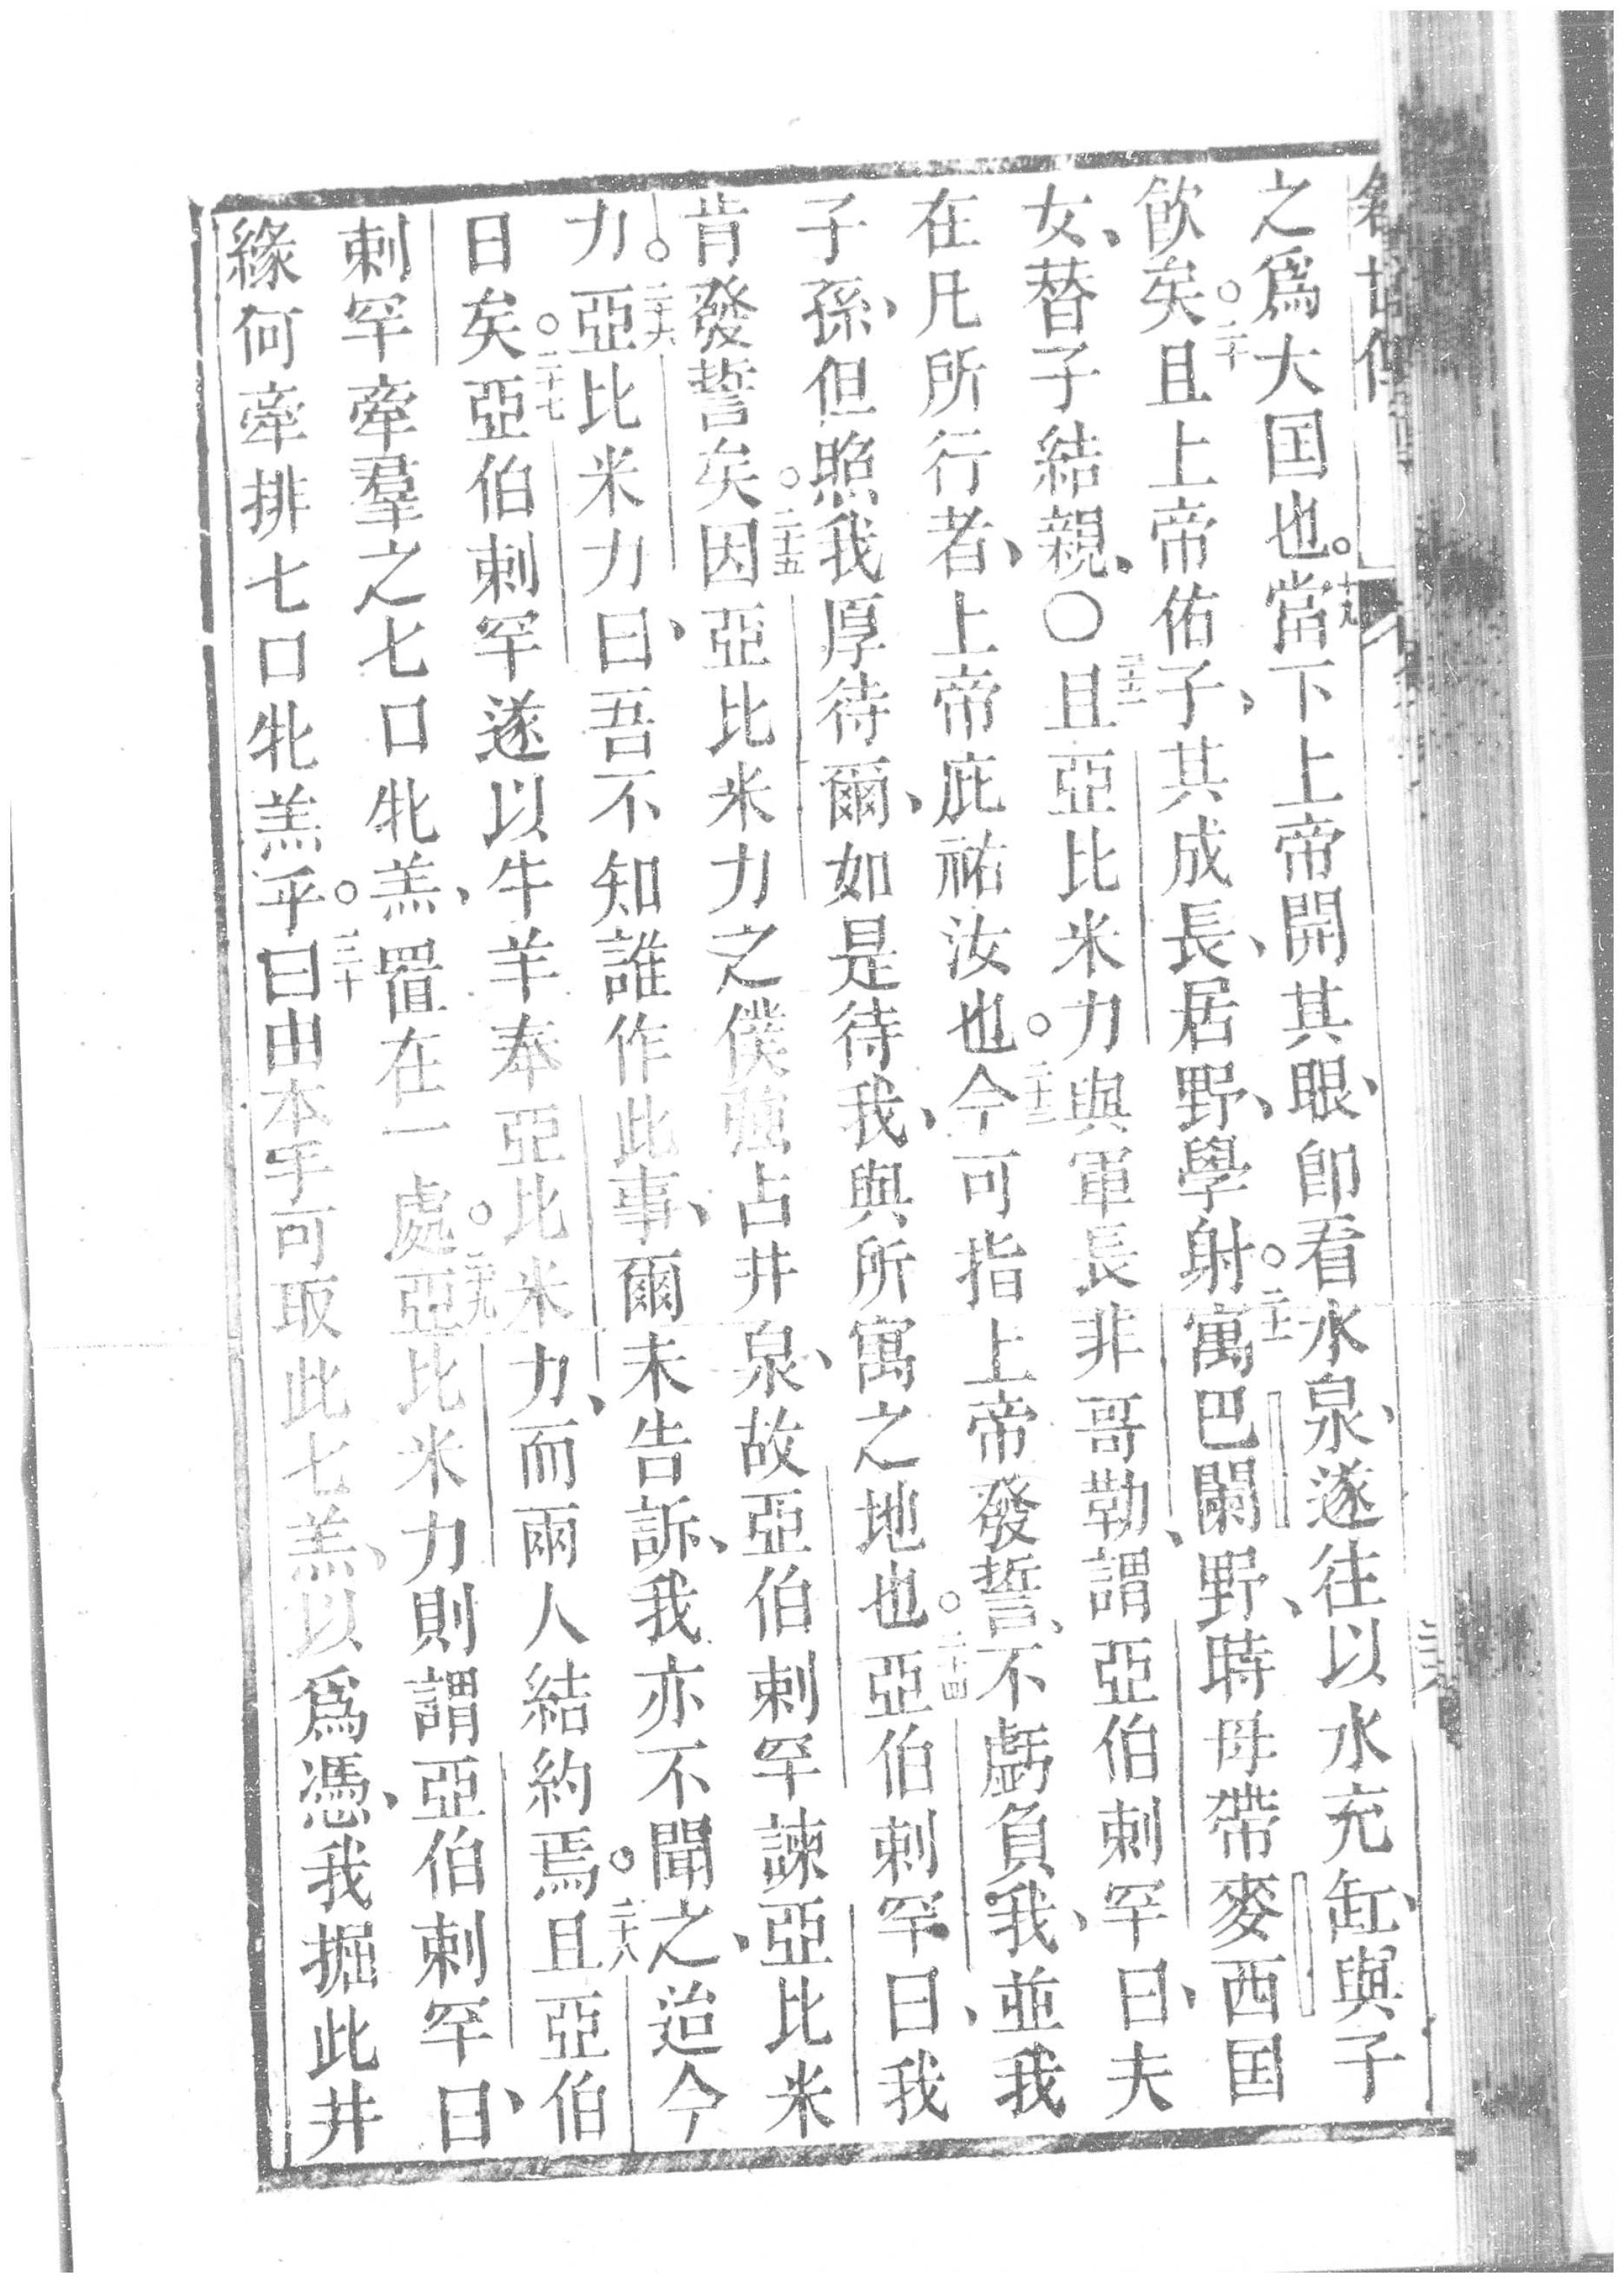 之爲大国也。十九當下上帝開其眼、卽看水泉、遂往以水充缸、與子
飲矣。二十且上帝佑子、其成長、居野、學射。二十一寓巴闌野、時母帶麥西国
女、替子結親、〇二十二且亞比米力與軍長非哥勒、謂亞伯剌罕曰、夫
在凡所行者、上帝庇祐汝也。二十三今可指上帝發誓、不虧負我、並我
子孫、但照我厚待爾、如是待我、與所寓之地也。二十四亞伯剌罕曰、我
肯發誓矣。二十五因亞比米力之僕強占井泉、故亞伯剌罕諫亞比米
力。二十六亞比米力曰、吾不知誰作此事、爾未告訴、我亦不聞之、迨今
日矣。二十七亞伯剌罕遂以牛羊奉亞比米力、而兩人結約焉。二十八且亞伯
剌罕牽羣之七口牝羔、置在一處。二十九亞比米力則謂亞伯剌罕曰、
緣何牽排七口牝羔乎。三十曰由本手可取此七羔、以爲憑、我掘此井